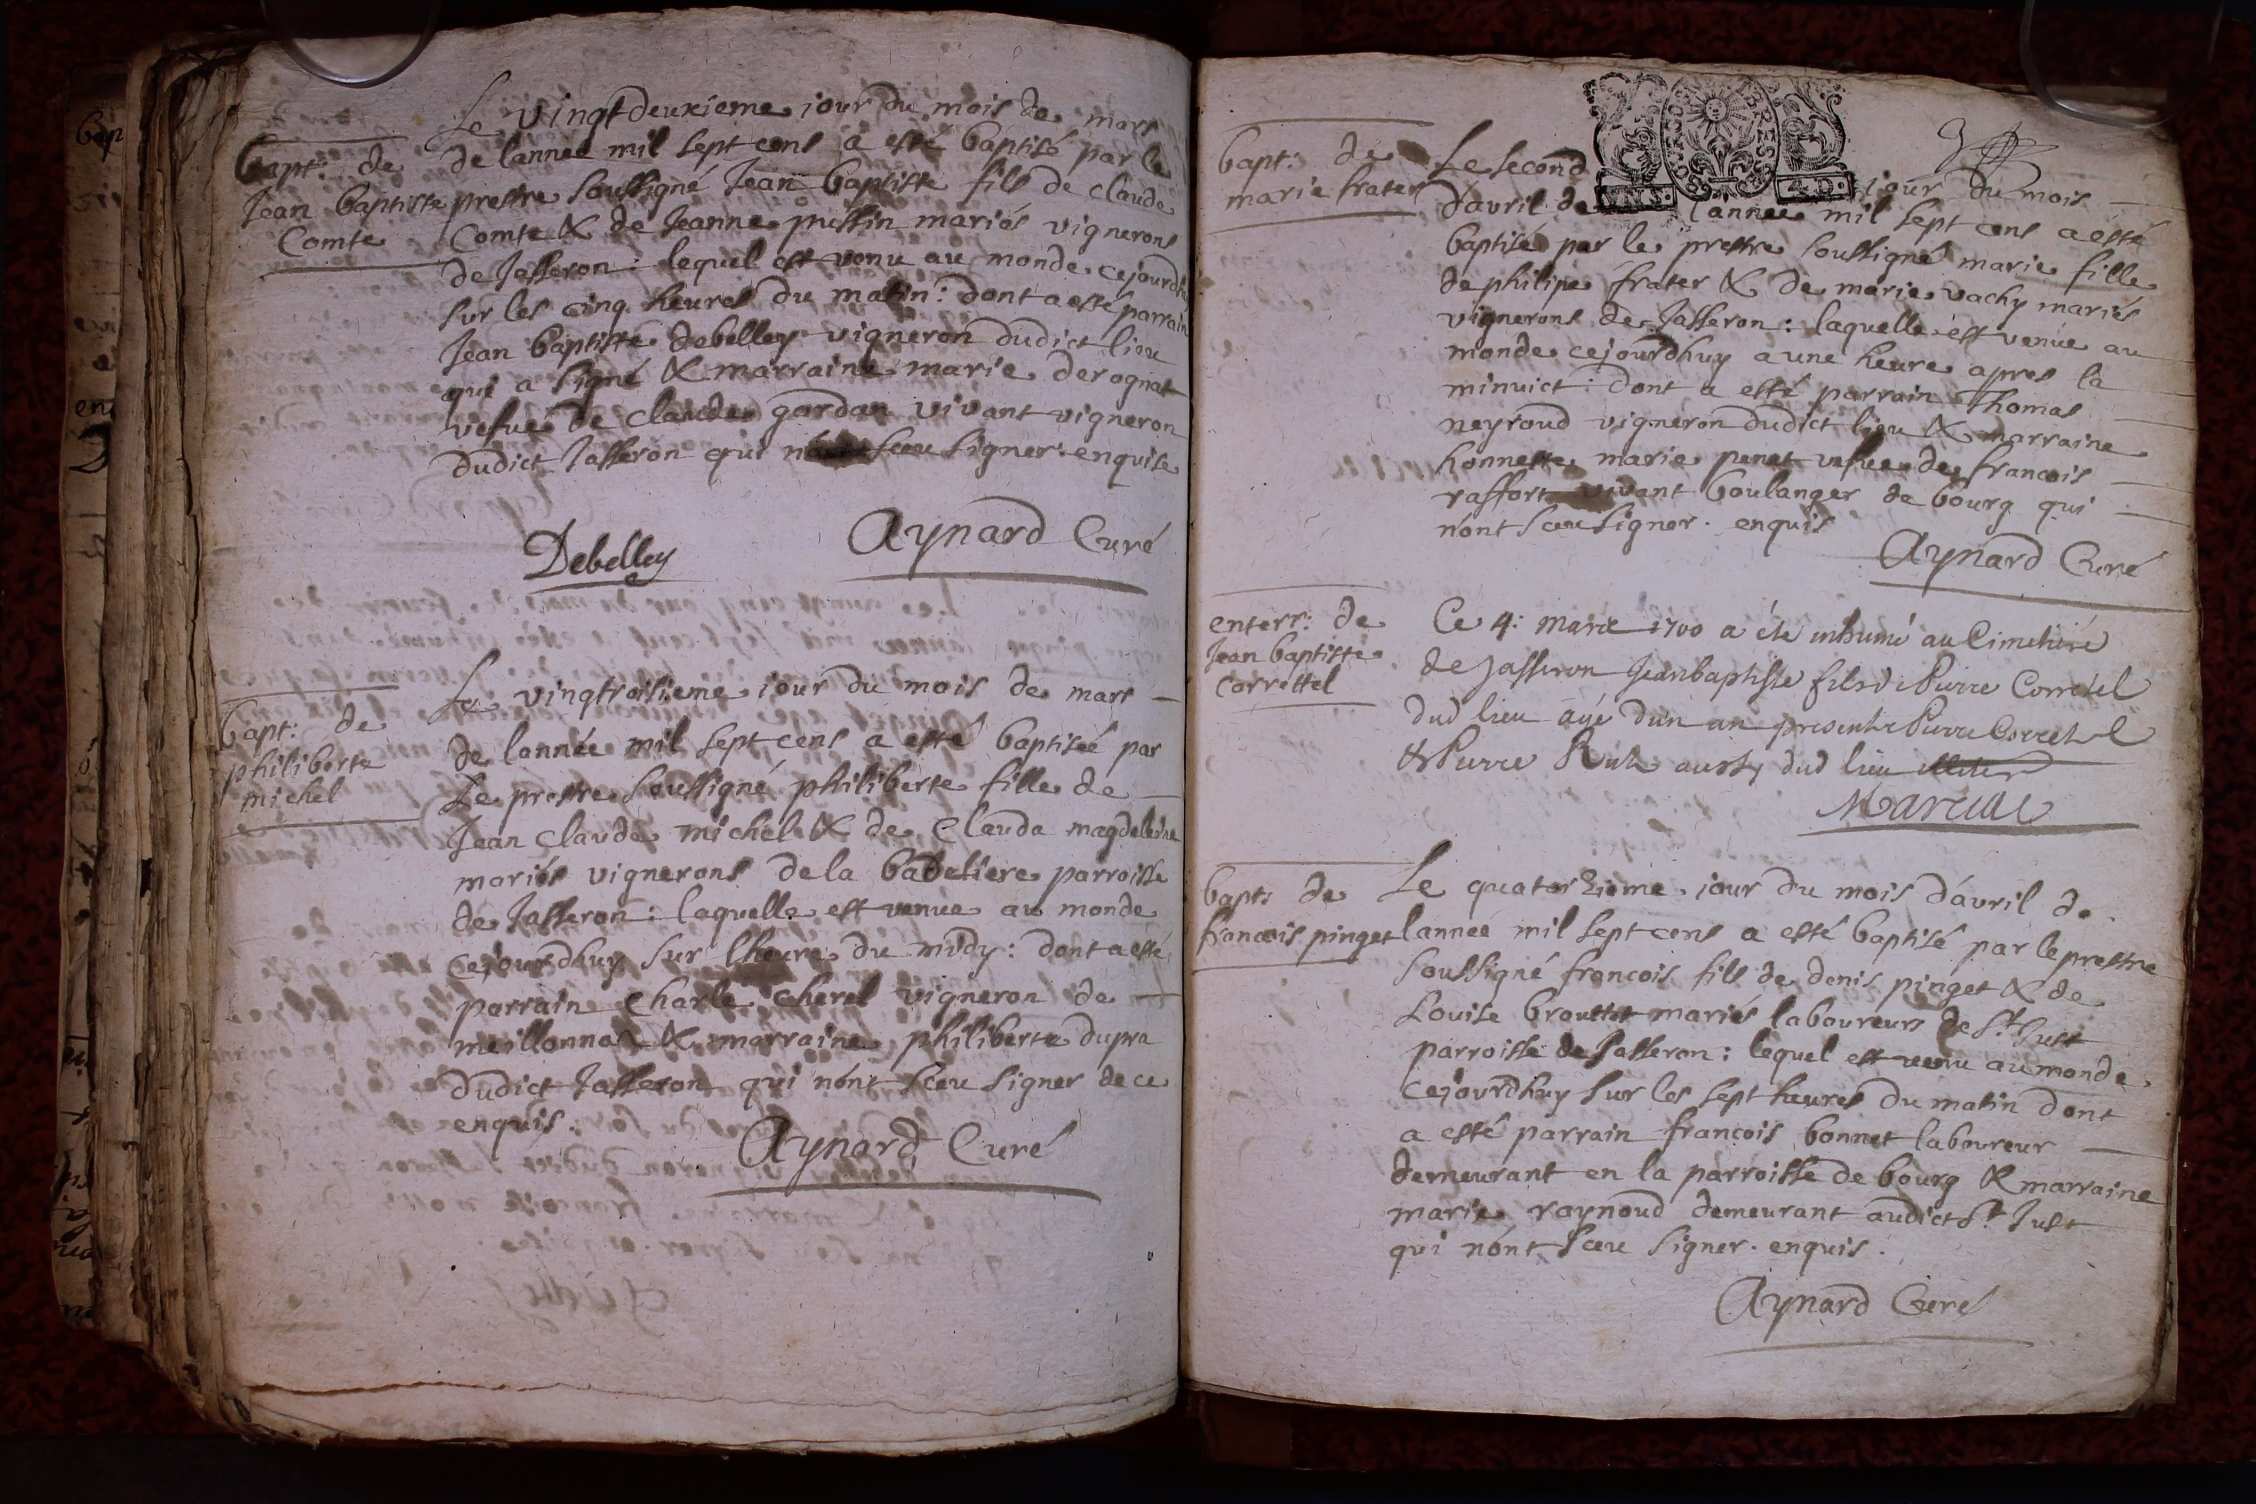 Le vingtdeuxieme jour du mois de mars
bapt: de
Jean baptiste
Comte
de lannee mil sept cens a esté baptisé par le
prestre soussigné Jean baptiste fils de claude
Comte & de Jeanne pussin mariés vignerons
de Jasseron: lequel est venu au monde cejourdhuy
sur les cinq heures du matin: dont a esté parrain
Jean baptiste debelley vigneron dudict lieu
qui a signé & marraine marie derognat
vefve de claude gordan vivant vigneron
dudict Jasseron qui sceu signer enquise
Debelley
Aynard Curé
bapt: de
philiberte
michel
Le vingtroisieme jour du mois de mars
de lannée mil sept cens a esté baptisée par
Le prestre soussigné philiberte fille de
Jean claude michel & de Clauda magdeleine
mariés vignerons de la badeliere parroisse
de Jasseron: laquelle est venue au monde
cejourdhuy sur lheure du midy: dont a esté
parrain Charle cherel vigneron de
meillonna & marraine philiberte dupra
dudict Jasseron qui nónt sceu signer de ce
enquis.
Aynard Curé
VNS. 4.D.
bapt: de
marie frater
Le second jour du mois
dávril de lannee mil sept cens a esté
baptisé par le prestre soussigné marie fille
de philipe frater & de marie vachy mariés
vignerons de Jasseron: laquelle est venue au
monde cejourdhuy a une heure apres la
minuict: dont a esté parrain Thomas
neyroud vigneron dudict lieu & marraine
honneste marie penet vefve de francois
raffort vivant boulanger de bourg qui
nónt sceu signer. enquis
Aynard Curé
enterr: de
Jean baptiste
correttel
Ce 4: mars 1700 a éte inhumé au Cimetiére
de Jasseron Jeanbaptiste fils de Pierre Corretel
dud lieu agé dun an presents Pierre Corretel
& Pierre aussy dud lieu
bapt: de
francois pinget
Le quatorzieme jour du mois dávril de
lannée mil sept cens a esté baptisé par le prestre
soussigné francois fils de denis pinget & de
Louise brouttet mariés laboureurs de St. Just
parroisse de Jasseron: lequel est venu au monde
cejourdhuy sur les sept heures du matin dont
a esté parrain francois bonnet laboureur
demeurant en la parroisse de bourg & marraine
marie raynoud demeurant audict St. Just
qui nónt sceu signer. enquis.
Aynard Curé